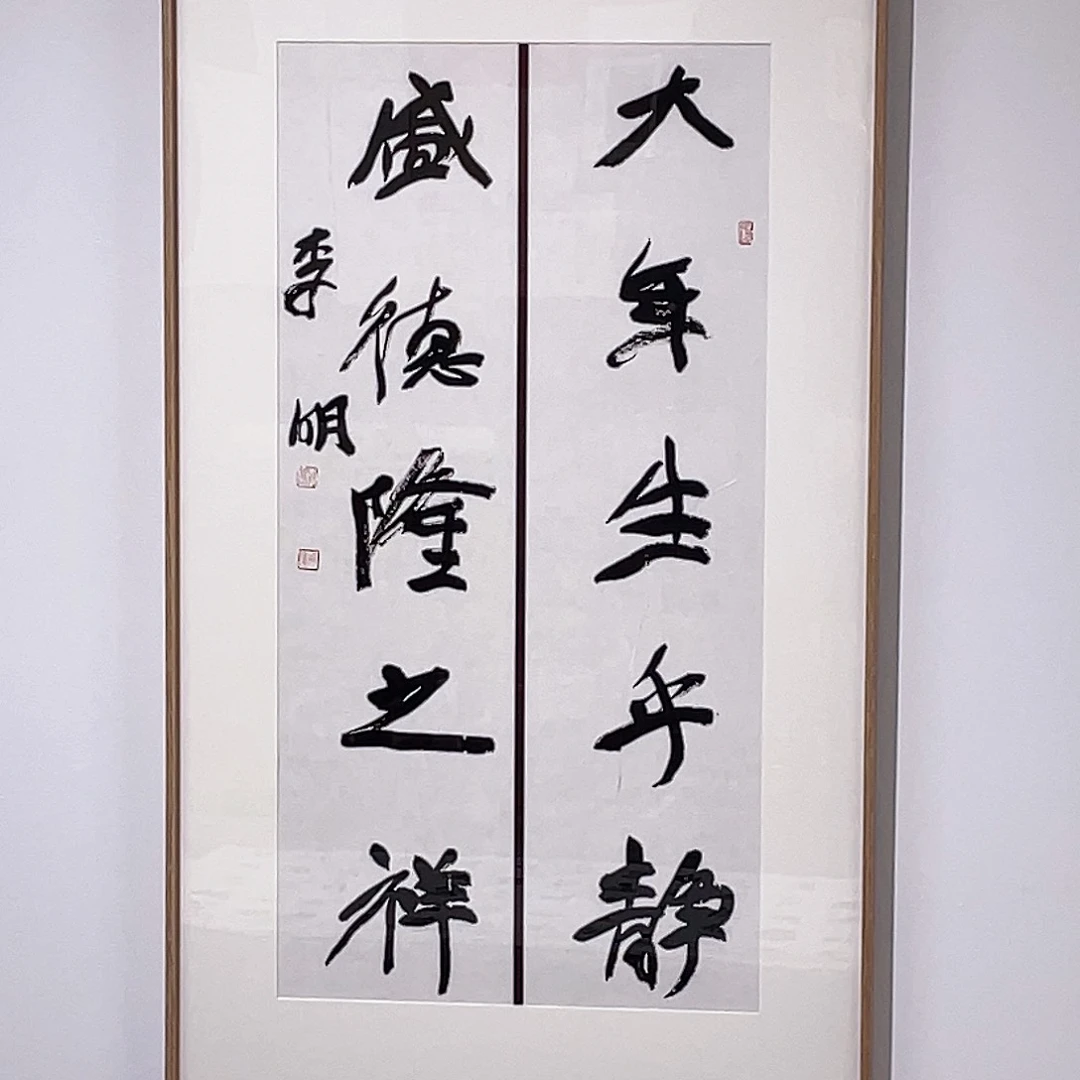 大年生乎静
盛德隆之祥
李明